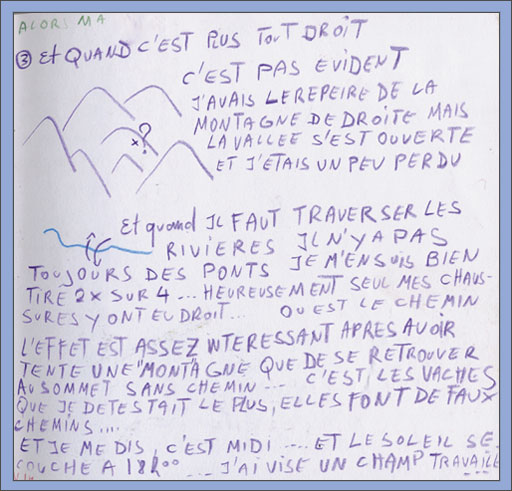 ALORS MA
③ Et QUAND C'EST PLUS TOUT DROIT
C'EST PAS EVIDENT
J'AVAIS LE REPEIRE DE LA
MONTAGNE DE DROITE MAIS
LA VALLEE S'EST OUVERTE
ET J'ETAIS UN PEU PERDU
x?
Et quand IL FAUT TRAVERSER LES
RIVIERES IL N'Y A PAS
TOUJOURS DES PONTS JE M'EN SUIS BIEN
TIRE 2X SUR 4 ... HEUREUSEMENT SEUL MES CHAUS-
SURES Y ONT EU DROIT... OU EST LE CHEMIN
L'EFFET EST ASSEZ INTERESSANT APRES AVOIR
TENTE UNE "MONTAGNE QUE DE SE RETROUVER
AU SOMMET SANS CHEMIN .... C'EST LES VACHES
QUE JE DETESTAIT LE PLUS, ELLES FONT DE FAUX
CHEMINS ....
ET JE ME DIS, C'EST MIDI .... ET LE SOLEIL SE
COUCHE A 18h00 ... J'AI VISE UN CHAMP TRAVAILLE